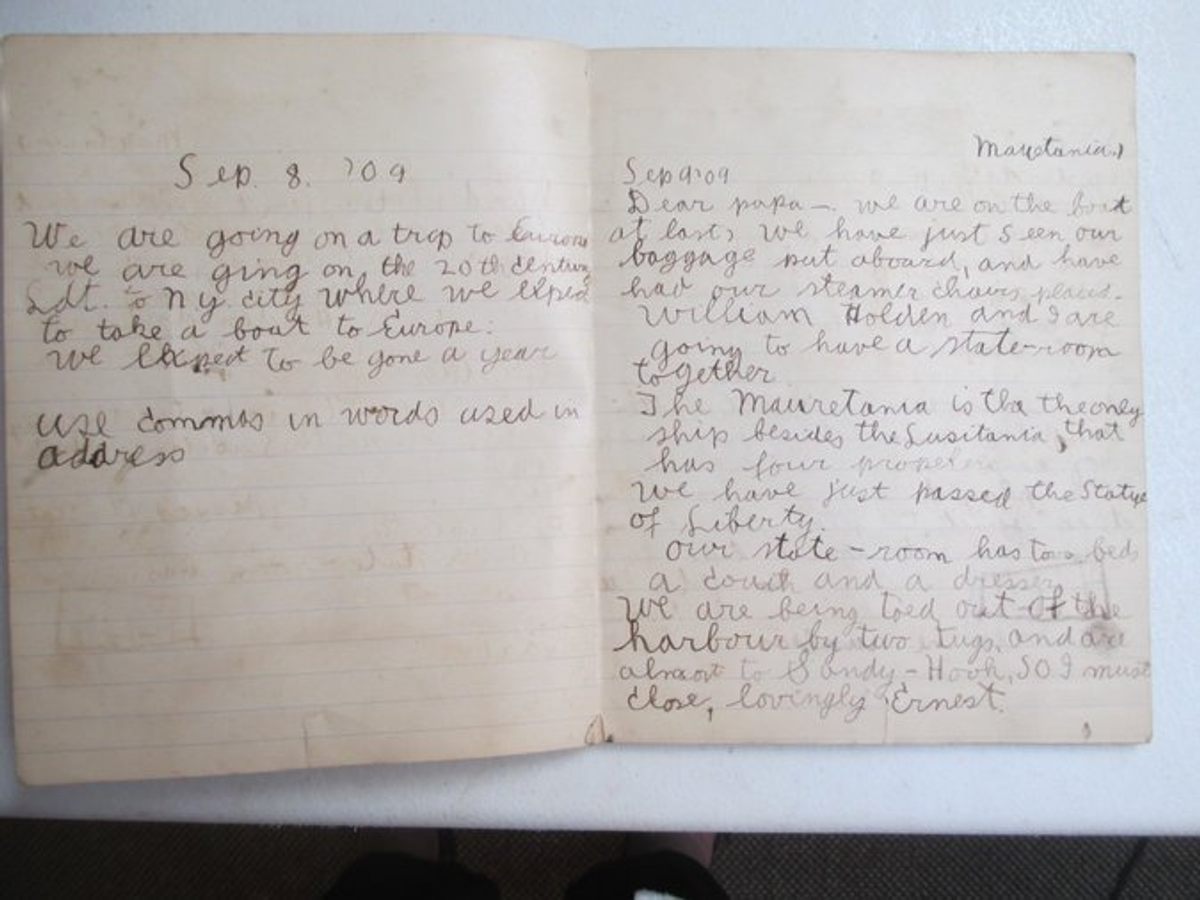 Sep. 8. '09
We are going on a trip to Europe
we are ging on the 20th century
Ldt. to N y city where we expect
to take a boat to Europe.
we expect to be gone a year
use commas in words used in
address
Mauretania.
Sep 9 '09
Dear papa — we are on the boat
at last, we have just seen our
baggage put aboard, and have
had our steamer chairs placed.
William Holden and I are
going to have a state-room
together.
The Mauretania is tha the only
ship besides the Lusitania, that
has four propel
We have just passed the Statue
of Liberty.
our state-room has two beds
a couch and a dresser
We are being toed out of the
harbour by two tugs, and are
almost to Sandy-Hook, so I must
close, lovingly Ernest.